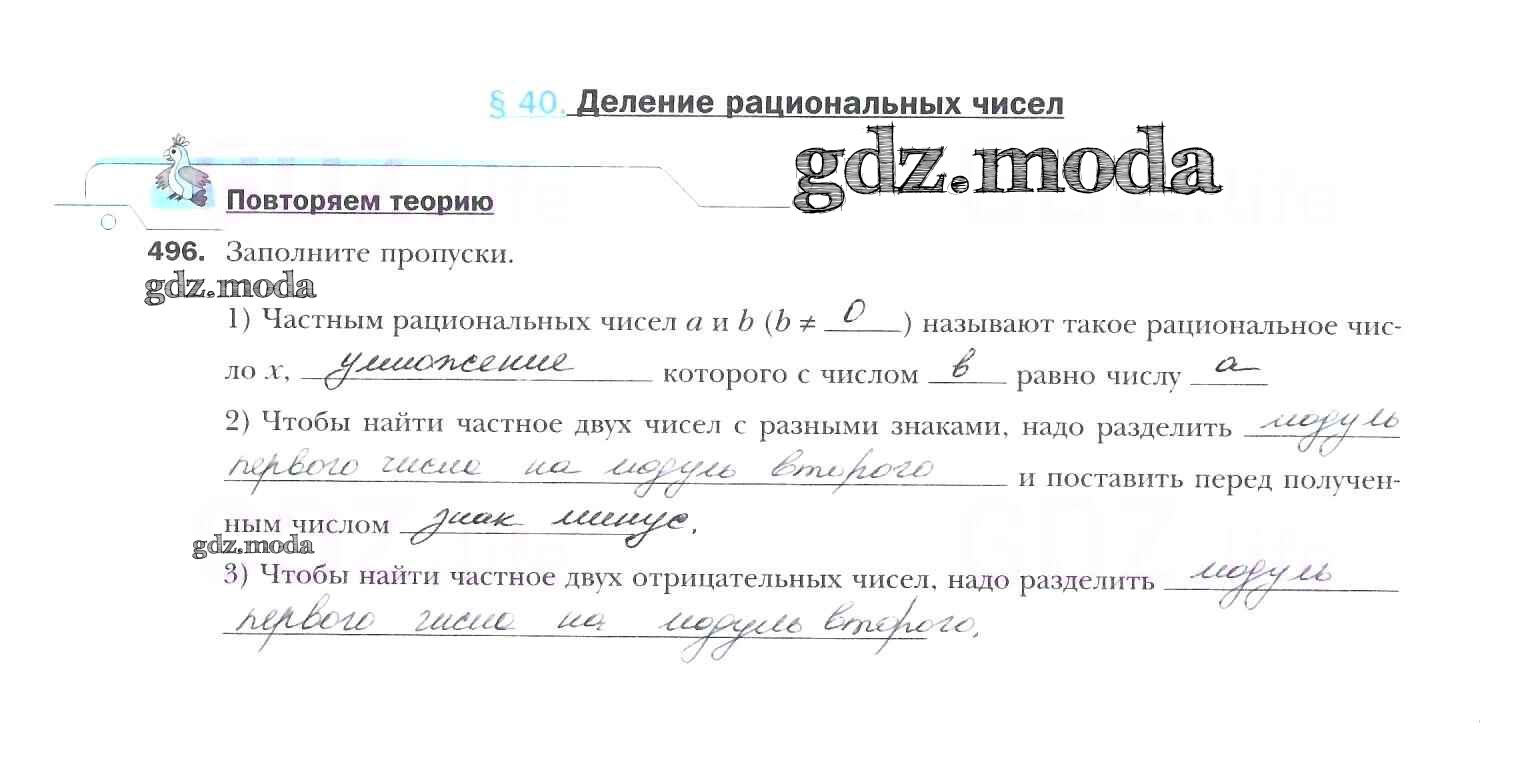 § 40. Деление рациональных чисел
gdz.moda
Повторяем теорию
496. Заполните пропуски.
gdz.moda
1) Частным рациональных чисел a и b (b ≠ 0) называют такое рациональное чис-
ло x, умножение которого с числом в равно числу а
2) Чтобы найти частное двух чисел с разными знаками, надо разделить модуль
первого числа на модуль второго и поставить перед получен-
ным числом знак минус.
gdz.moda
3) Чтобы найти частное двух отрицательных чисел, надо разделить модуль
первого числа на модуль второго.